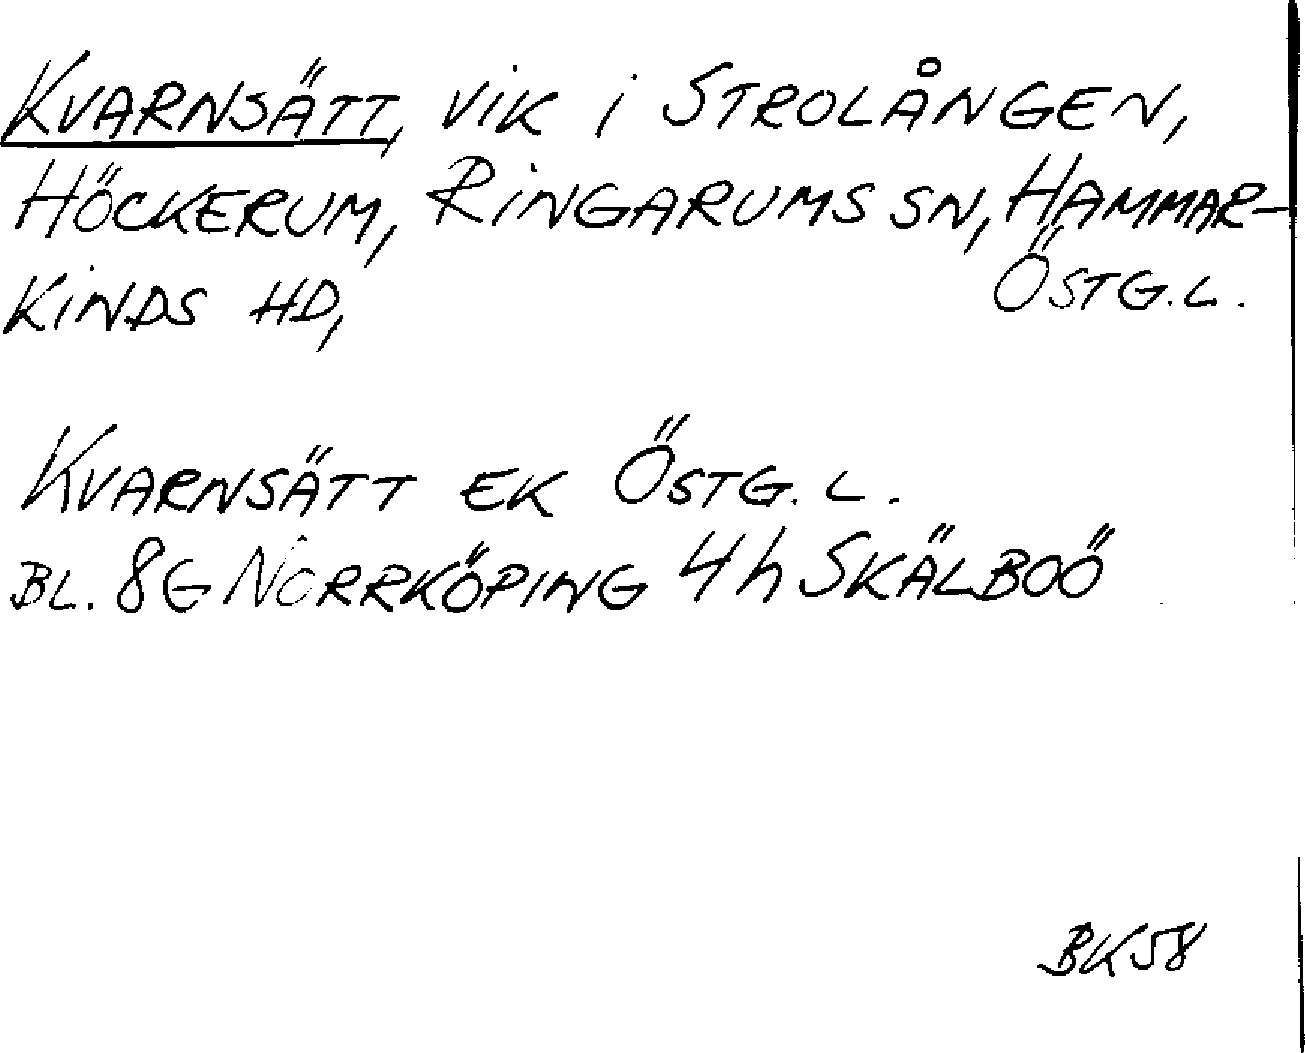 KVARNSÄTT, VIK I STROLÅNGEN,
HÖCKERUM, RINGARUMS SN, HAMMAR-
KINDS HD, ÖSTG.L.
KVARNSÄTT EK ÖSTG. L.
BL. 8G NORRKÖPING 4h SKÄLBOÖ
BK58